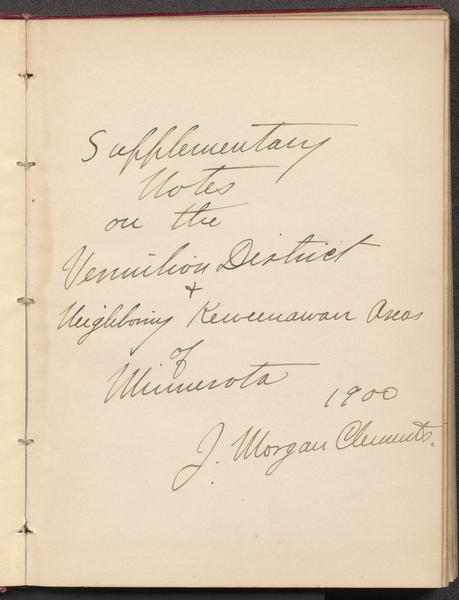 Supplementary
Notes
on the
Vermilion District
+
Neighboring Keweenawan Areas
of
Minnesota
1900
J. Morgan Clements.